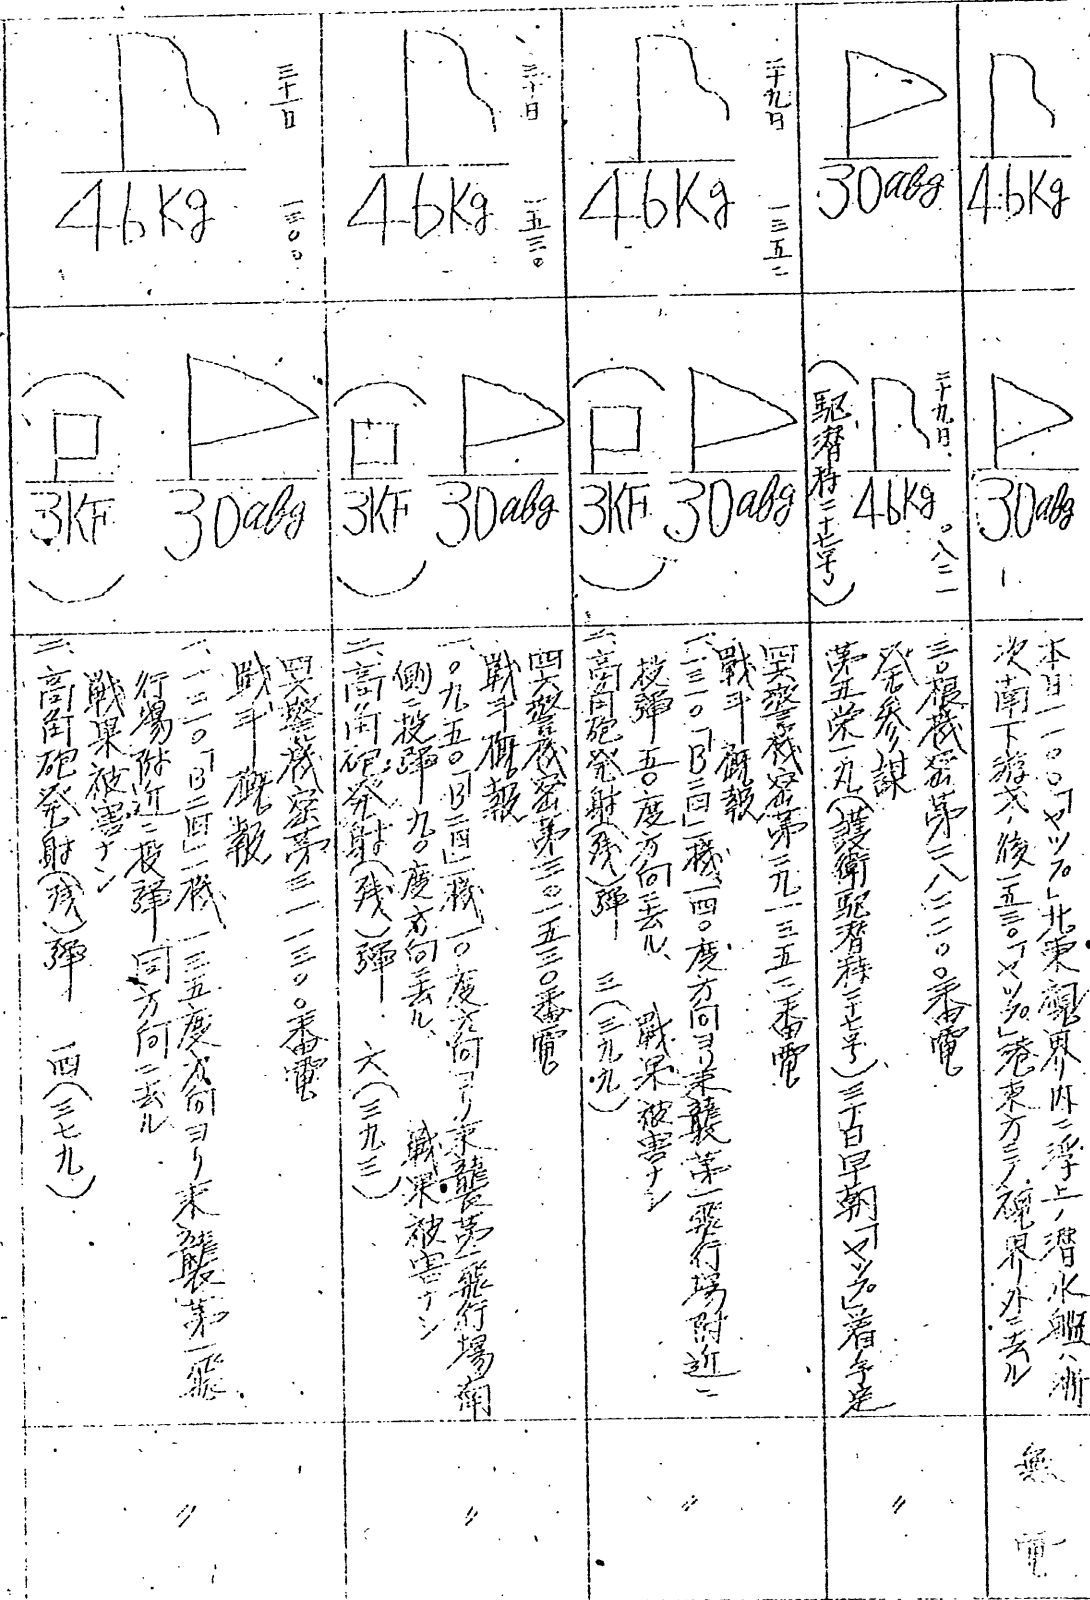 46Kg
30abg
本日一一〇〇「ヤップ」北東視界内ニ浮上ノ潜水艦ハ漸
次南下游弋ノ後一五三〇「ヤップ」港東方ニテ視界外ニ去ル
無電
30abg
二十九日、〇八二一
46Kg
(駆潜特二十七号)
三〇根機密第二八二二〇〇番電
発 参謀
第五栄丸(護衛駆潜特二十七号)三十日早朝「ヤップ」着予定
〃
二十九日 一三五二
46Kg
30abg
(3KF)
四六警機密第二九一三五二番電
戦斗概報
一、一三一〇「B二四」一機一四〇度方向ヨリ来襲第一飛行場附近ニ
投弾五〇度方向ニ去ル、戦果被害ナシ
二、高角砲発射(残)弾 三(三九九)
〃
三十日 一五三〇
46Kg
30abg
(3KF)
四六警機密第三〇一五三〇番電
戦斗概報
一、〇九五〇「B二四」二機一〇度方向ヨリ来襲第一飛行場南
側ニ投弾九〇度方向ニ去ル、戦果被害ナシ
二、高角砲発射(残)弾 六(三九三)
〃
三十一日 一三〇〇
46Kg
30abg
(3KF)
四六警機密第三一一三〇〇番電
戦斗概報
一、一二一〇「B二四」二機一三五度方向ヨリ来襲第一飛
行場附近ニ投弾同方向ニ去ル
戦果被害ナシ
二、高角砲発射(残)弾 一四(三七九)
〃